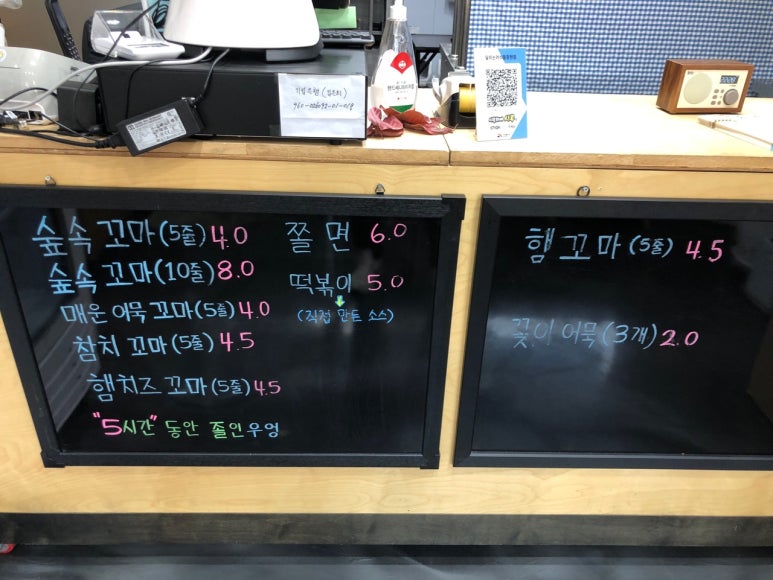 숲속 꼬마(5줄) 4.0
숲속 꼬마(10줄) 8.0
매운 어묵 꼬마(5줄) 4.0
참치 꼬마(5줄) 4.5
햄치즈 꼬마(5줄) 4.5
"5시간" 동안 졸인 우엉
쫄면 6.0
떡볶이 5.0
(직접 만든 소스)
햄 꼬마 (5줄) 4.5
꽂이 어묵(3개) 2.0